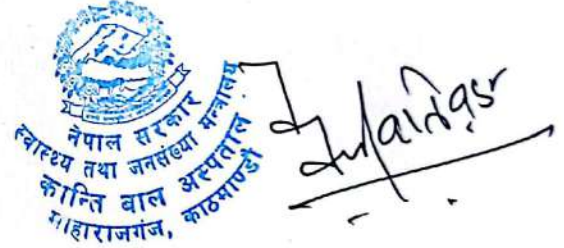 नेपाल सरकार
स्वास्थ्य तथा जनसंख्या मन्त्रालय
कान्ति बाल अस्पताल
माहाराजगंज, काठमाण्डौ